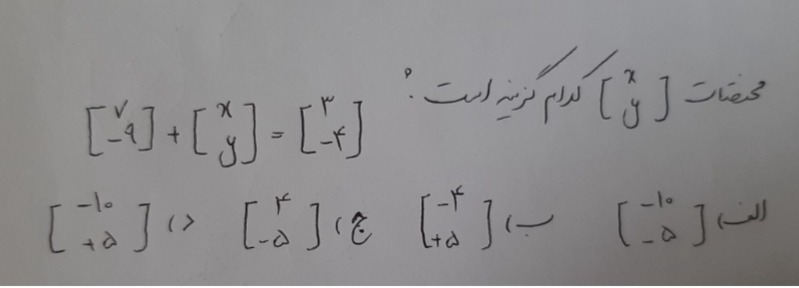 مختصات [x y] کدام گزینه است؟
[۷ -۹] + [x y] = [۳ -۴]
الف) [-۱۰ -۵] ب) [-۴ +۵] ج) [۴ -۵] د) [-۱۰ +۵]